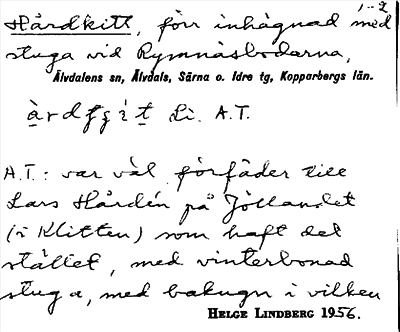 1-2
Hårdkitt, förr inhägnad med
stuga vid Rymnäsbodarna,
Älvdalens sn, Älvdals, Särna o. Idre tg, Kopparbergs län.
Li. A.T.
A.T.: var väl förfäder till
Lars Hårdén på Jöllandet
(i Klitten) som haft det
stället, med vinterbonad
stuga, med bakugn i vilken
HELGE LINDBERG 1956.